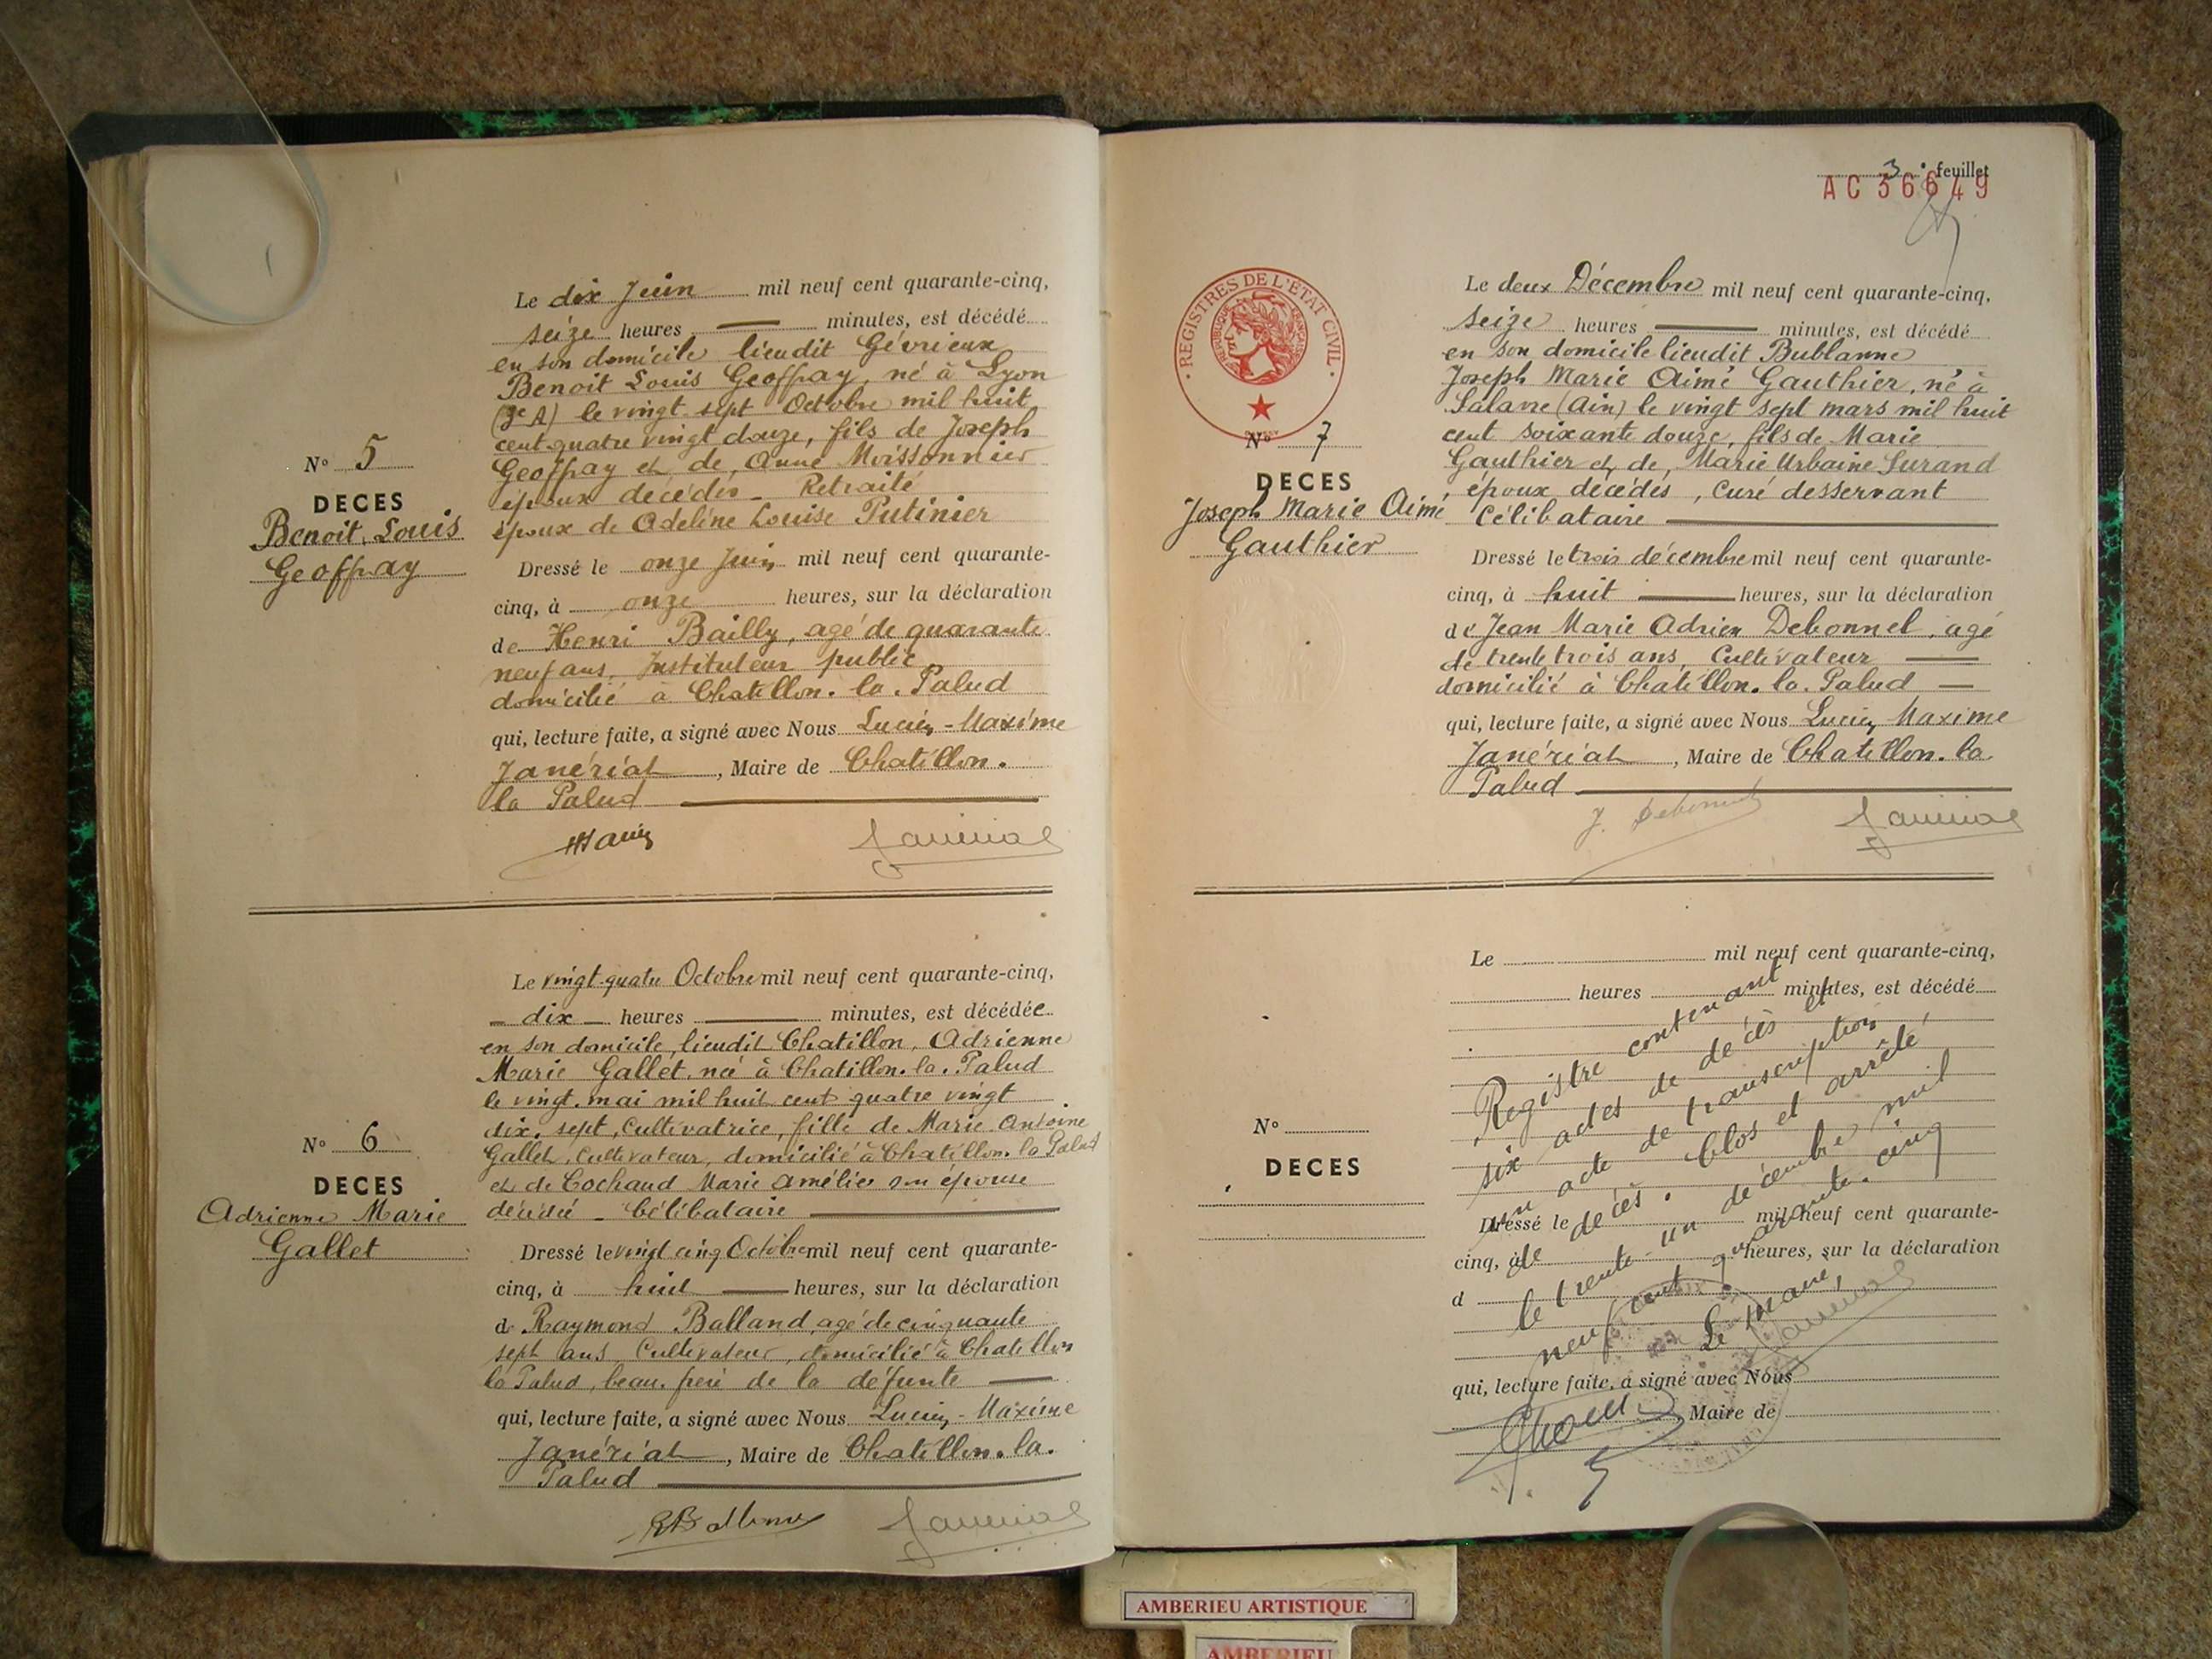 Le dix Juin mil neuf cent quarante-cinq,
seize heures minutes, est décédé
en son domicile lieudit Gévrieux
Benoit Louis Geoffray, né à Lyon
le vingt sept Octobre mil huit
cent quatre vingt douze, fils de Joseph
Geoffray et de Anne Moissonnier
époux décédés _ Retraité
époux de Adeline Louise Putinier
N° 5
DECES
Benoit Louis
Geoffray
Dressé le onze Juin mil neuf cent quarante-
cinq, à onze heures, sur la déclaration
de Henri Bailly, agé de quarante
neuf ans, Instituteur public,
domicilié à Chatillon. la. Palud
qui, lecture faite, a signé avec Nous Lucien - Maxime
Janériat, Maire de Chatillon.
la Palud
Le vingt-quatre Octobre mil neuf cent quarante-cinq,
_ dix _ heures minutes, est décédée
en son domicile, lieudit Chatillon, Adrienne
Marie Gallet, née à Chatillon. la. Palud
le vingt. mai mil huit cent quatre vingt
dix. sept, Cultivatrice, fille de Marie Antoine
Gallet, Cultivateur, domicilié à Chatillon. la Palud
et de Cochaud Marie Amélie son épouse
décédée _ Célibataire
N° 6
DECES
Adrienne Marie
Gallet
Dressé le vingt cinq Octobre mil neuf cent quarante-
cinq, à huit heures, sur la déclaration
de Raymond Balland, agé de cinquante
sept ans, Cultivateur, domicilié à Chatillon
la Palud, beau. frère de la défunte
qui, lecture faite, a signé avec Nous Lucien - Maxime
Janériat, Maire de Chatillon. la.
Palud
3e feuillet
AC 36649
REGISTRES DE L'ETAT CIVIL
REPUBLIQUE FRANÇAISE
Le deux Décembre mil neuf cent quarante-cinq,
seize heures minutes, est décédé
en son domicile lieudit Bublanne
Joseph Marie Aimé Gauthier, né à
Salavre (Ain) le vingt sept mars mil huit
cent soixante douze, fils de Marie
Gauthier et de Marie Urbaine Surand
époux décédés, Curé desservant
Célibataire
N° 7
DECES
Joseph Marie Aimé
Gauthier
Dressé le trois décembre mil neuf cent quarante-
cinq, à huit heures, sur la déclaration
de Jean Marie Adrien Debonnel, agé
de trente trois ans, Cultivateur
domicilié à Chatillon. la. Palud
qui, lecture faite, a signé avec Nous Lucien Maxime
Janériat, Maire de Chatillon. la.
Palud
J. Debonnel
Le mil neuf cent quarante-cinq,
heures minutes, est décédé
N°
DECES
Dressé le mil neuf cent quarante-
cinq, à heures, sur la déclaration
d
qui, lecture faite, a signé avec Nous
Maire de
Registre contenant
six actes de décès et
un acte de transcription
de décès. Clos et arrêté
le trente-un décembre mil
neuf cent quarante. cinq
Le Maire,
AMBERIEU ARTISTIQUE
AMBERIEU